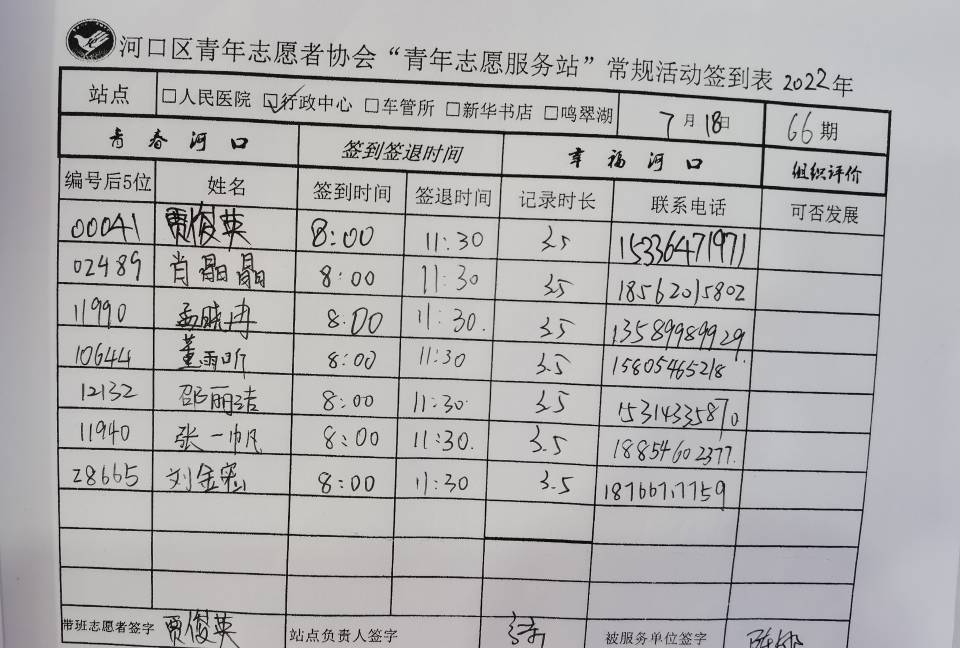 河口区青年志愿者协会“青年志愿服务站”常规活动签到表 2022年
站点 □人民医院 ☑行政中心 □车管所 □新华书店 □鸣翠湖 7月18日 66期
青春河口 签到签退时间 幸福河口 组织评价
编号后5位 姓名 签到时间 签退时间 记录时长 联系电话 可否发展
00041 贾俊英 8:00 11:30 3.5 15336471971
02489 肖晶晶 8:00 11:30 3.5 18562015802
11990 孟晓冉 8:00 11:30. 3.5 13589989929
10644 董雨昕 8:00 11:30 3.5 15805465218
12132 邵丽洁 8:00 11:30 3.5 15314335870
11940 张一帆 8:00 11:30. 3.5 18854602377.
28665 刘金宏 8:00 11:30 3.5
带班志愿者签字 贾俊英 站点负责人签字 被服务单位签字